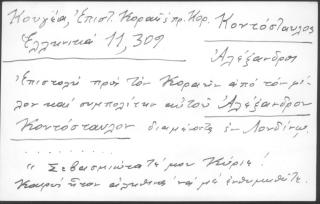 Κουγέα, Ἐπιστ. Κοραῆ ἐ. πρ. Κερ. Κοντόσταυλος
Ἑλληνικά 11,309 Ἀλέξανδρος
Ἐπιστολή πρός τόν Κοραήν ἀπό τόν φί-
λον καί συμπολίτην αὐτοῦ Ἀλέξανδρον
Κοντόσταυλον διαμένοντα ἐν Λονδίνῳ.
. . . . . . . . .
" Σεβασμιώτατέ μου Κύριε!
Καιρός ἦτον ἀληθινά νά μέ ἐνθυμηθῆτε.